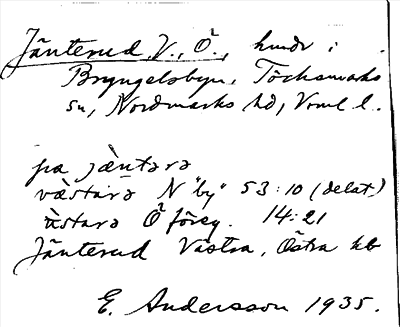 Jänterud, V., Ö., hmdr i
Bryngelsbyn, Töcksmarks
sn, Nordmarks hd, Vrml l.
pa jæ̀ntərə
væ̀stərə N "by" 53:10 (delat)
ùstərə Ö föreg. 14:21
Jänterud Västra, Östra kb
E. Andersson 1935.